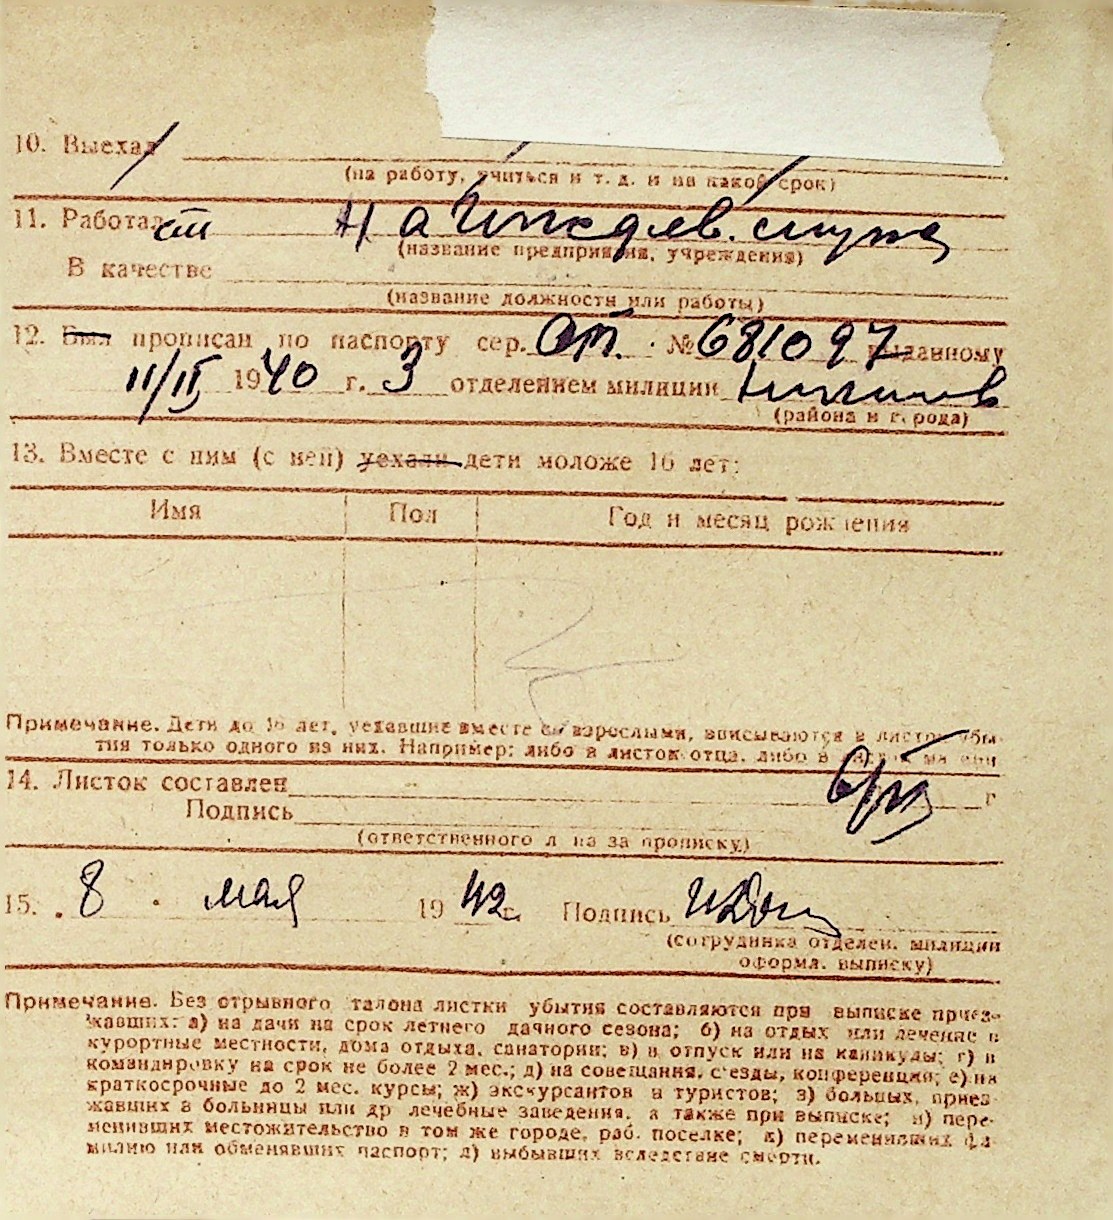 10. Выехал
(на работу, учиться и т. д. и на какой срок)
11. Работал на
(название предприятия, учреждения)
В качестве
(название должности или работы)
12. Был прописан по паспорту сер. № 681097 выданному
11/II 1940 г. 3 отделением милиции
(района и города)
13. Вместе с ним (с ней) уехали дети моложе 16 лет:
Имя Пол Год и месяц рождения
Примечание. Дети до 16 лет, уехавшие вместе со взрослыми, вписываются в листок убы-
тия только одного из них. Например: либо в листок отца, либо в
14. Листок составлен г
Подпись
(ответственного лица за прописку)
15. 8 мая 1942 г. Подпись
(сотрудника отделен. милиции
оформл. выписку)
Примечание. Без отрывного талона листки убытия составляются при выписке приез-
жавших: а) на дачи на срок летнего дачного сезона; б) на отдых или лечение в
курортные местности, дома отдыха, санатории; в) в отпуск или на каникулы; г) в
командировку на срок не более 2 мес.; д) на совещания, съезды, конференции; е) на
краткосрочные до 2 мес. курсы; ж) экскурсантов и туристов; з) больных, приез-
жавших в больницы или др лечебные заведения, а также при выписке; и) пере-
менивших местожительство в том же городе, раб. поселке; к) переменивших фа-
милию или обменявших паспорт; л) выбывших вследствие смерти.